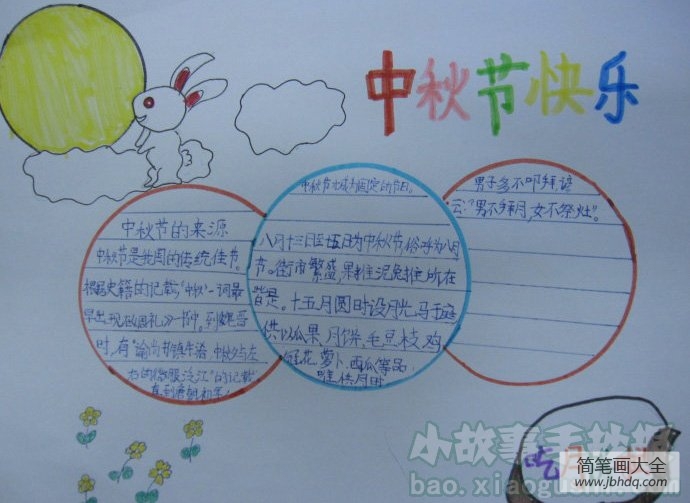 中秋节快乐
中秋节的来源
中秋节是我国的传统佳节。
根据史籍的记载,"中秋"一词最
早出现在《周礼》一书中。到魏晋
时,有"谕尚书镇牛渚,中秋夕与左
右微服泛江"的记载
直到唐朝初年,
中秋节才成为固定的节日。
八月十三日至十五日为中秋节,俗呼为八月
节。街市繁盛,果摊泥兔摊所在
皆是。十五月圆时设月光马于庭
供以瓜果、月饼、毛豆枝、鸡
冠花、萝卜、西瓜等品
惟供月时
男子多不叩拜,谚
云:"男不拜月,女不祭灶"。
吃月
小故事手抄报
bao.xiaogushi.com
简笔画大全
www.jbhdq.com